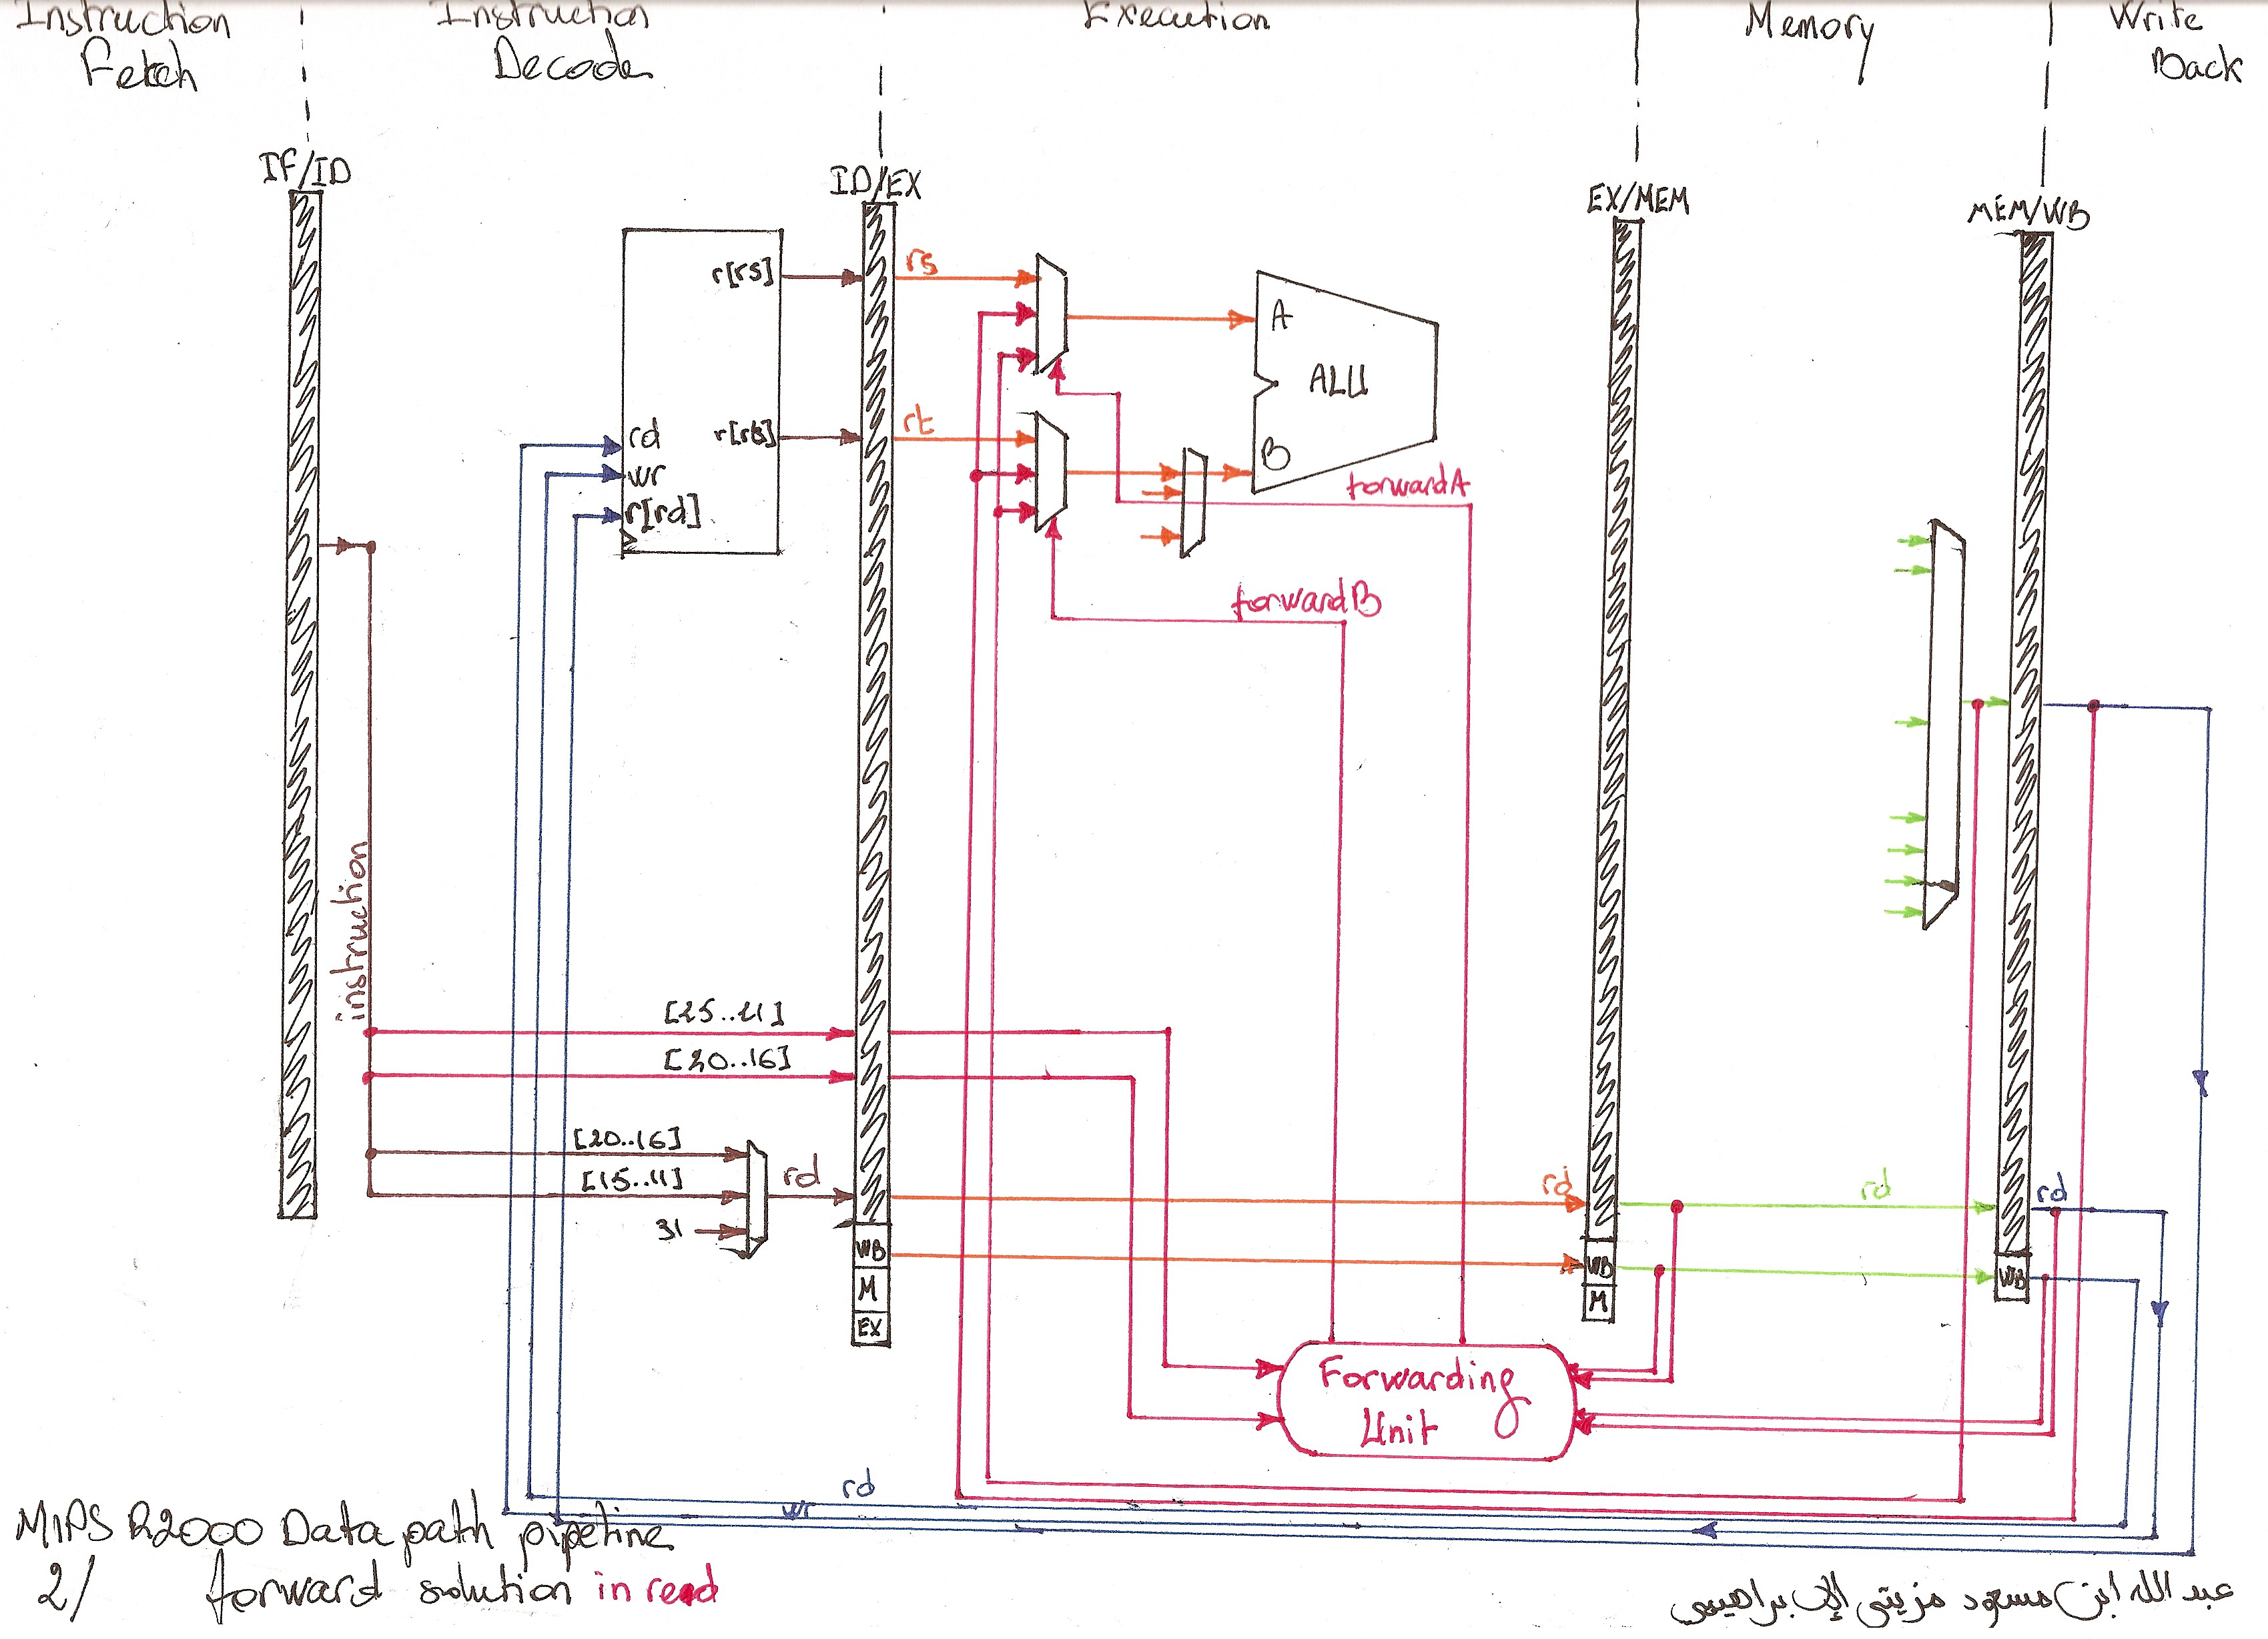 Instruction
Fetch
Instruction
Decode
Execution
Memory
Write
Back
IF/ID
ID/EX
EX/MEM
MEM/WB
r[rs]
r[rt]
rd
wr
r[rd]
rs
rt
A
ALU
B
forwardA
forwardB
instruction
[25..21]
[20..16]
[20..16]
[15..11]
31
rd
rd
rd
rd
WB
M
EX
WB
M
WB
Forwarding
Unit
rd
wr
MIPS R2000 Data path pipeline
2/ forward solution in read
عبد الله ابن مسعود مزيتي الإبراهيمي